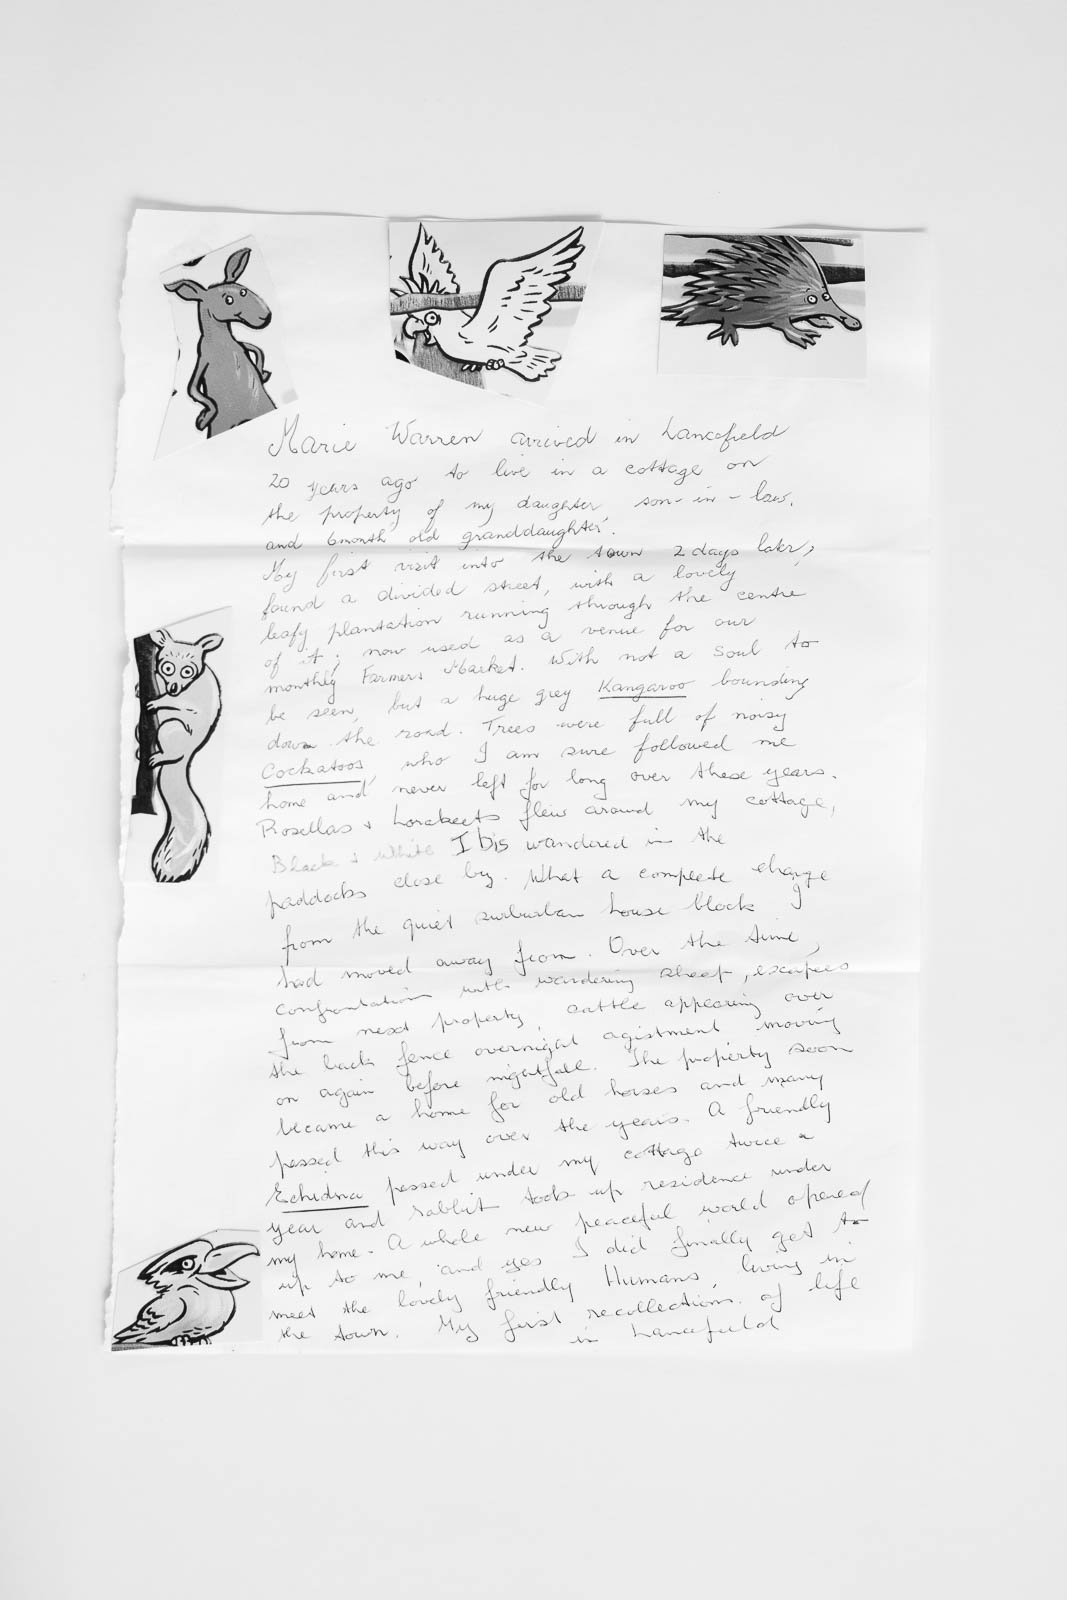 Marie Warren arrived in Lancefield
20 years ago to live in a cottage on
the property of my daughter, son-in-law,
and 6month old granddaughter.
My first visit into the town 2 days later,
found a divided street, with a lovely
leafy plantation running through the centre
of it; now used as a venue for our
monthly Farmers Market. With not a soul to
be seen, but a huge grey Kangaroo bounding
down the road. Trees were full of noisy
Cockatoos, who I am sure followed me
home and never left for long over these years.
Rosellas + Lorakeets flew around my cottage,
Black + White Ibis wandered in the
paddocks close by. What a complete change
from the quiet surburban house block I
had moved away from. Over the time,
confrontation with wandering sheep, escapees
from next property, cattle appearing over
the back fence overnight agistment moving
on again before nightfall. The property soon
became a home for old horses and many
passed this way over the years. A friendly
Echidna passed under my cottage twice a
year and rabbit took up residence under
my home. A whole new peaceful world opened
up to me, and yes I did finally get to
meet the lovely friendly Humans, living in
the town. My first recollections of life
in Lancefield